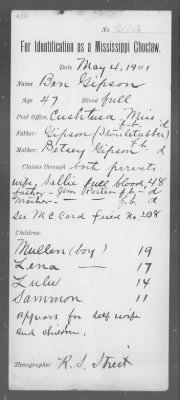 No.
For Identification as a Mississippi Choctaw.
Date May 4, 1901
Name Ben Gipson
Age 47 Blood full
Post Office, Miss
Father: Gipson d
Mother: Betsey Gipson f.b. d
Claims through both parents
wife, Sallie full blood, 48
father - Jim f.b - d
Mother - f.b. d
See M C Card Field No. 208
Children:
Mullen (boy) 19
Lena — 17
Lulu 14
Sammon 11
appears for self wife
and children.
Stenographer R.S. Streit